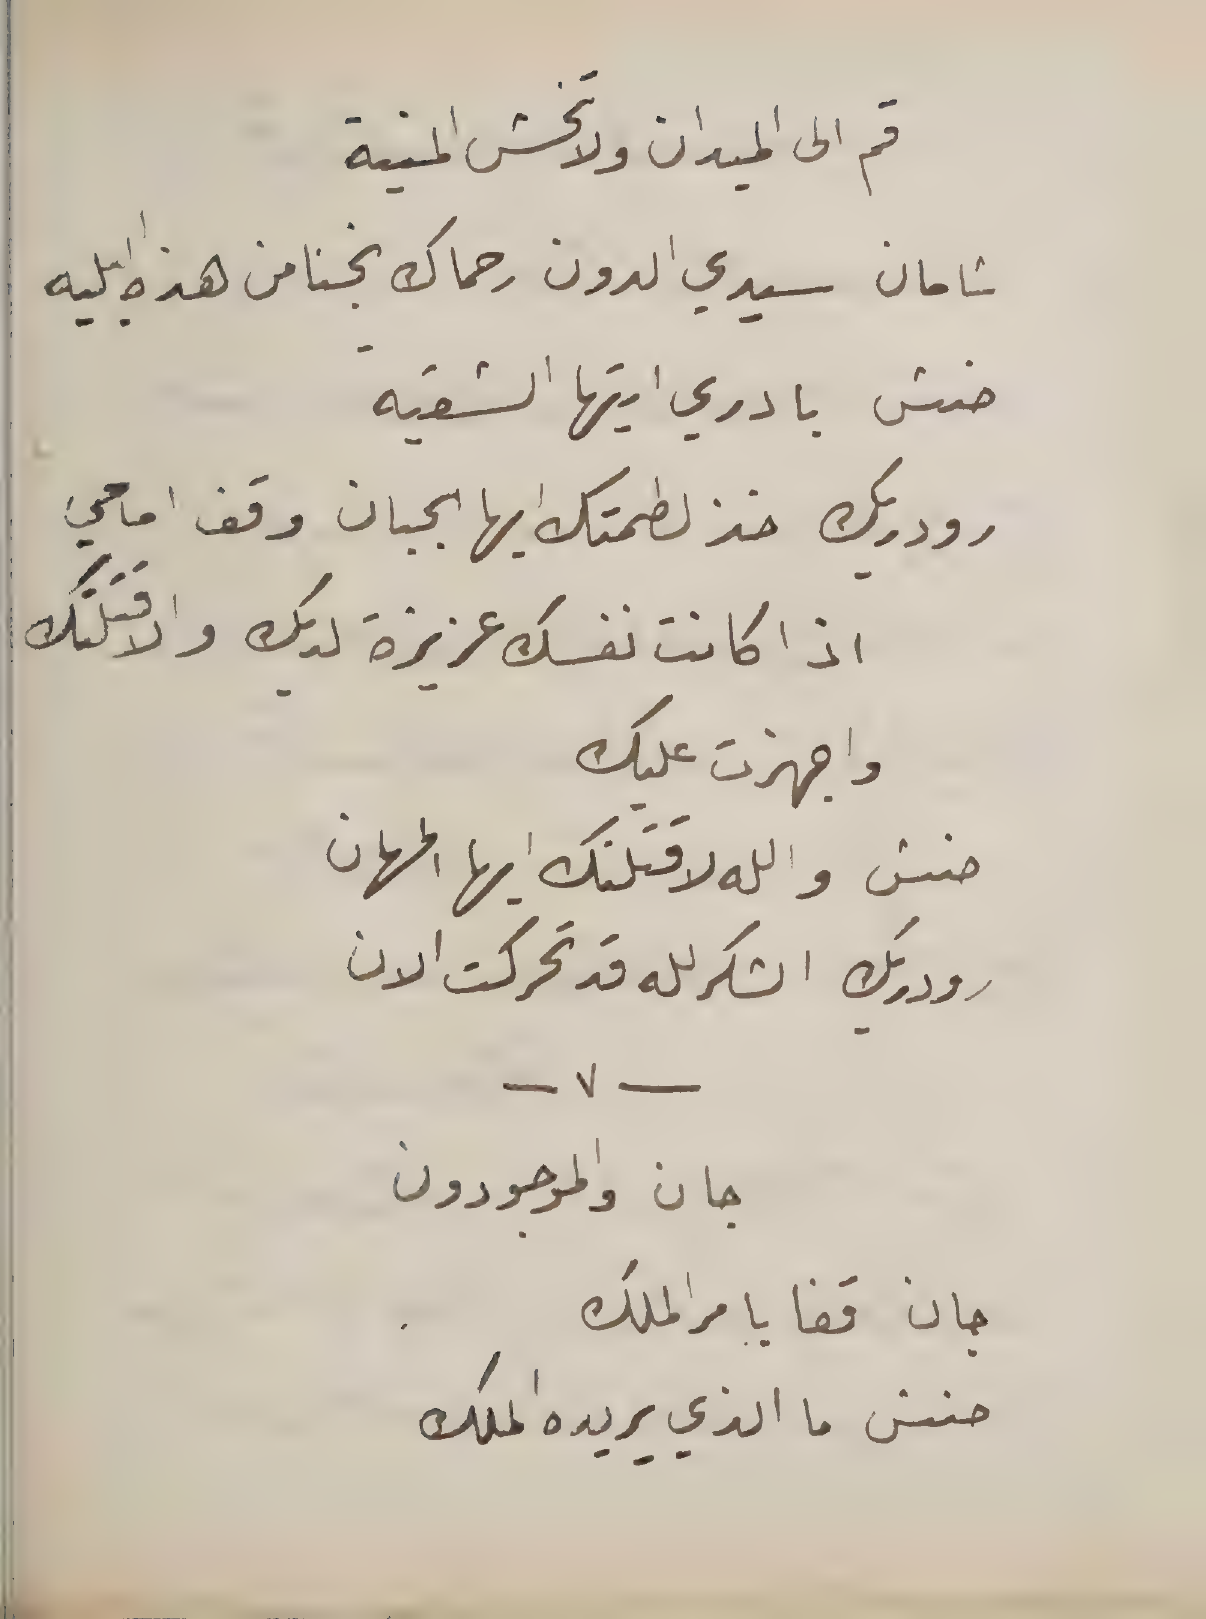 قم الى الميدان ولا تخش المنية
شامان سيدي الدون رحماك نجنا من هذه البليه
حنش بادري ايتها الشقيه
رودريك خذ لطمتك ايها الجبان وقف امامي
اذا كانت نفسك عزيزة لديك والا قتلتك
واجهزت عليك
حنش والله لاقتلنك ايها المهان
رودريك الشكر لله قد تحركت الان
— ٧ —
جان والموجودون
جان قفا بامر الملك
حنش ما الذي يريده الملك